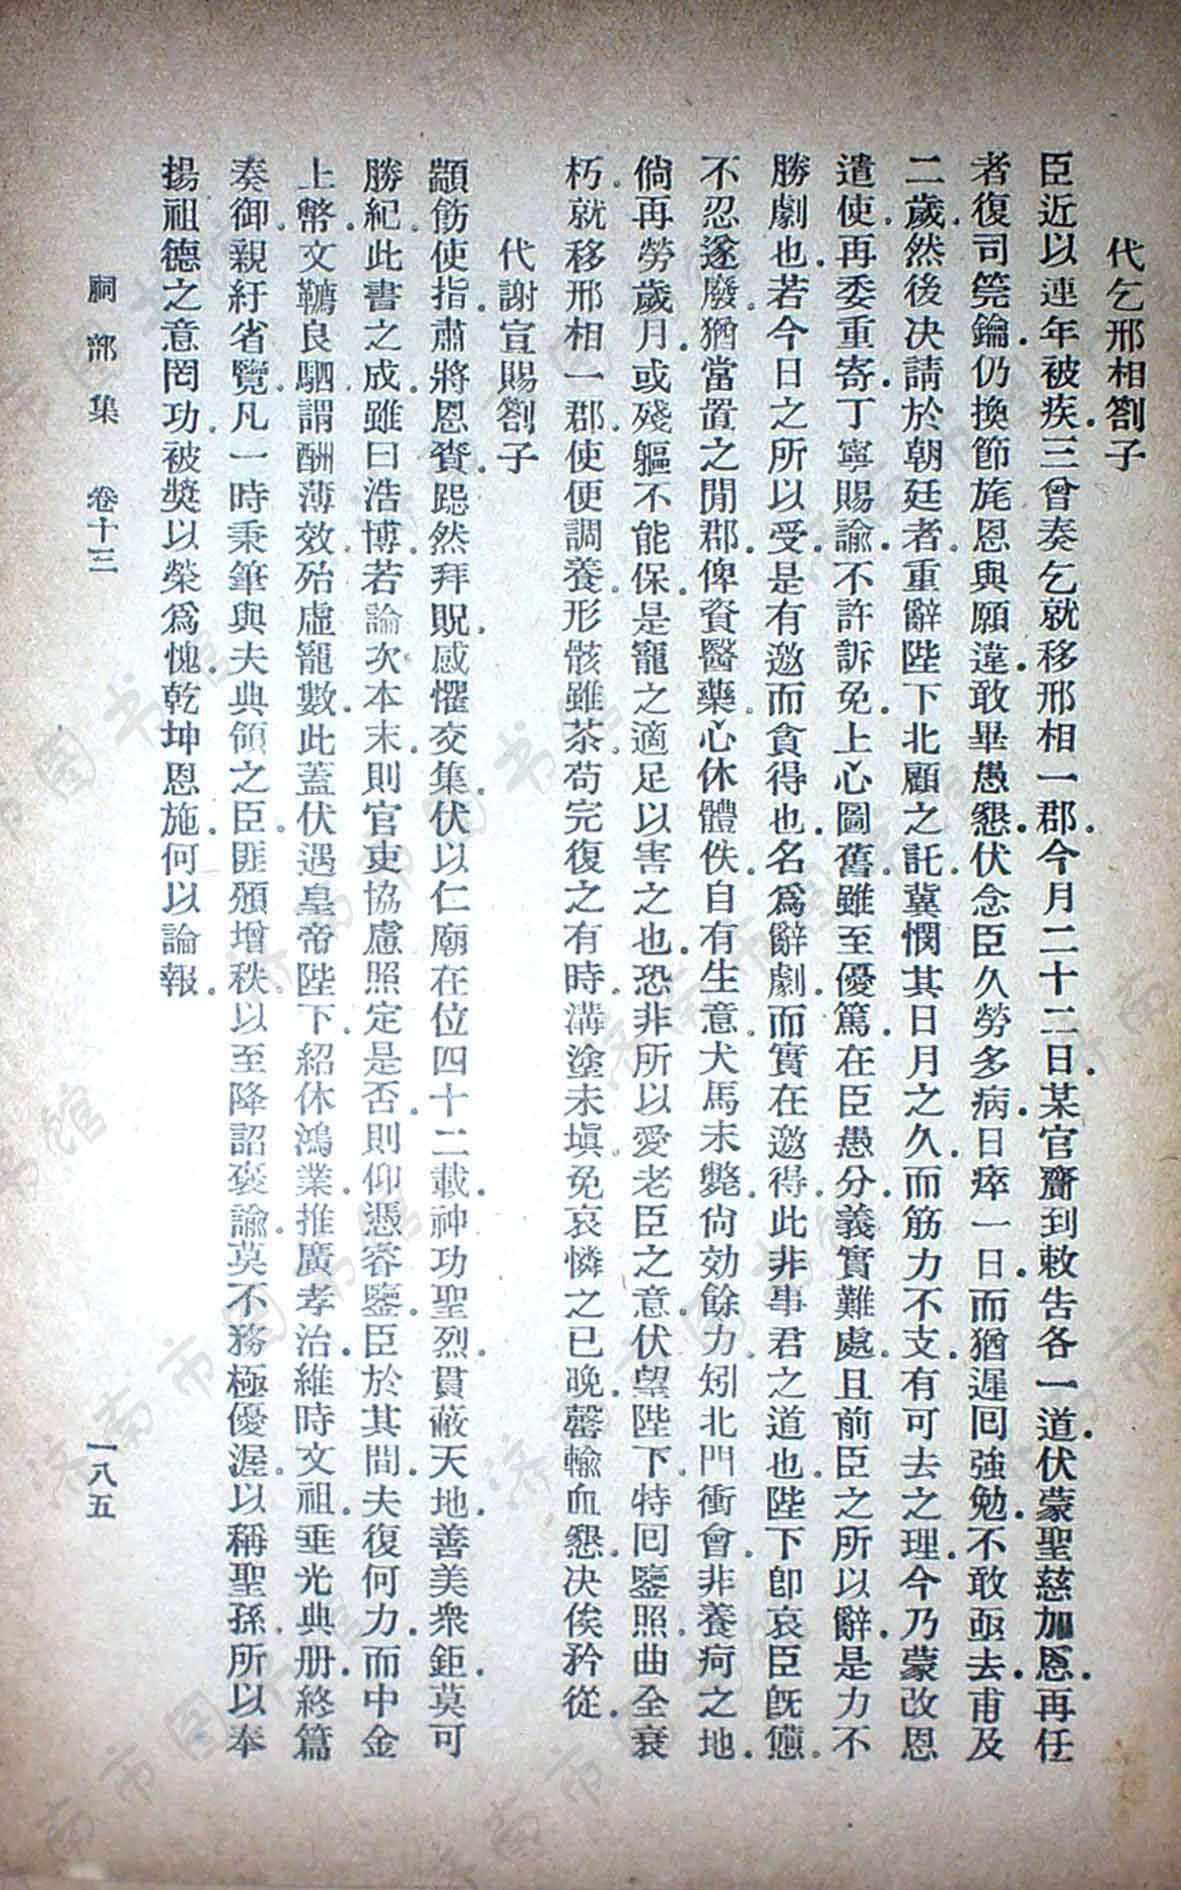 代乞邢相劄子
臣近以連年被疾三曾奏乞就移邢相一郡今月二十二日某官齎到敕告各一道伏蒙聖慈加恩再任
者復司筦鑰仍換節旄恩與願違敢畢愚懇伏念臣久勞多病日瘁一日而猶遲回強勉不敢亟去甫及
二歲然後決請於朝廷者重辭陛下北顧之託冀憫其日月之久而筋力不支有可去之理今乃蒙改恩
遣使再委重寄丁寧賜諭不許訴免上心圖舊雖至優篤在臣愚分義實難處且前臣之所以辭是力不
勝劇也若今日之所以受是有邀而貪得也名爲辭劇而實在邀得此非事君之道也陛下卽哀臣旣憊
不忍遂廢猶當置之閒郡俾資醫藥心休體佚自有生意犬馬未斃尙効餘力矧北門衝會非養疴之地
倘再勞歲月或殘軀不能保是寵之適足以害之也恐非所以愛老臣之意伏望陛下特回鑒照曲全衰
朽就移邢相一郡使便調養形骸雖苶苟完復之有時溝塗未塡免哀憐之已晚罄輸血懇決俟矜從
代謝宣賜劄子
顓飭使指肅將恩賚跽然拜貺感懼交集伏以仁廟在位四十二載神功聖烈貫蔽天地善美衆鉅莫可
勝紀此書之成雖曰浩博若論次本末則官吏協慮照定是否則仰憑睿鑒臣於其間夫復何力而中金
上幣文韉良駟謂酬薄效殆虛寵數此蓋伏遇皇帝陛下紹休鴻業推廣孝治維時文祖垂光典册終篇
奏御親紆省覽凡一時秉筆與夫典領之臣匪頒增秩以至降詔褒諭莫不務極優渥以稱聖孫所以奉
揚祖德之意罔功被奬以榮爲愧乾坤恩施何以論報
祠部集 卷十三 一八五
济南市图书馆